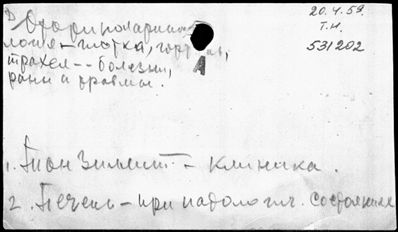 Оторинолaринго
логия - глотка, гортань,
трахея -- болезни,
раны и травмы.
А
20.4.59.
Т.Н.
531202
1. - клиника.
2. Печень - при патологич. состояниях